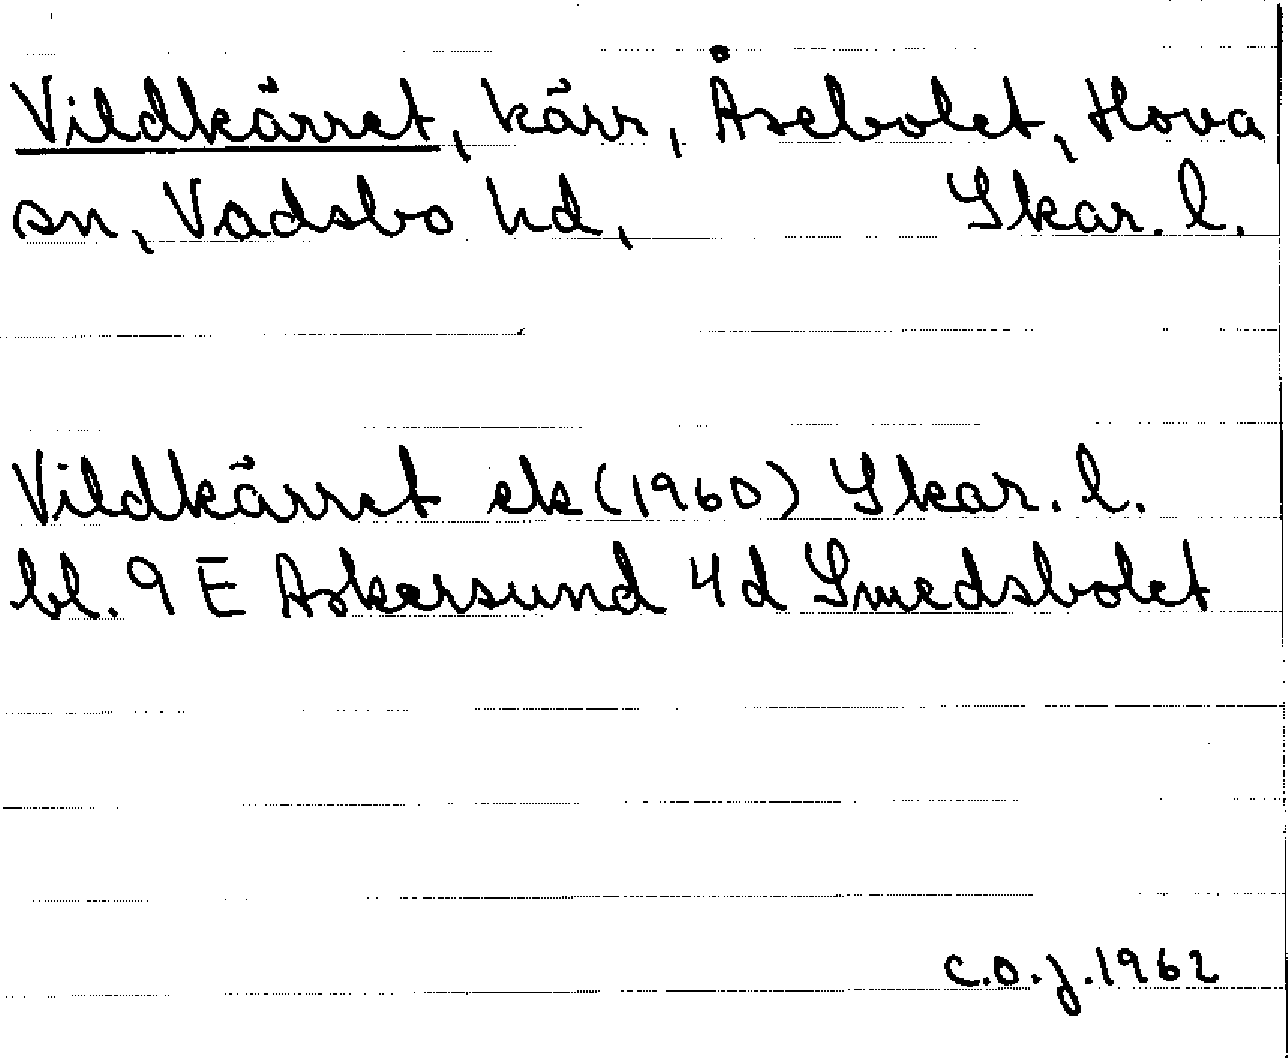 Vildkärret, kärr, Åsebolet, Hova
sn, Vadsbo hd, Skar. l.
Vildkärret ek (1960) Skar. l.
bl. 9 E Askersund 4d Smedsbolet
C.O.J. 1962